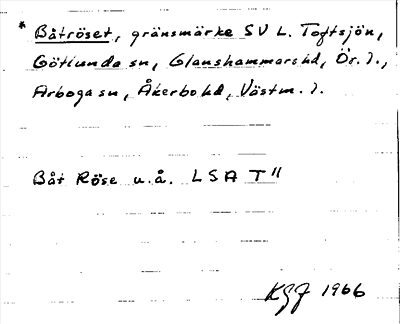 * Båtröset, gränsmärke SV L. Toftsjön,
Götlunda sn, Glanshammars hd, Ör. l.,
Arboga sn, Åkerbo hd, Västm. l.
Båt Röse u.å. LSA T"
KGJ 1966